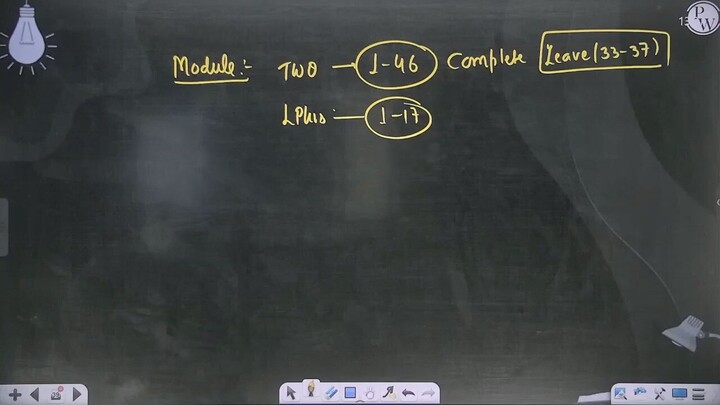 Module:- TWO — 1-46 Complete Leave (33-37)
LPlus — 1-17
PW